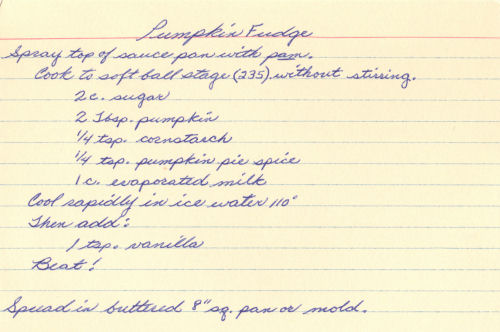 Pumpkin Fudge
Spray top of sauce pan with pam.
Cook to soft ball stage (235) without stirring.
2 c. sugar
2 Tbsp. pumpkin
1/4 tsp. cornstarch
1/4 tsp. pumpkin pie spice
1 c. evaporated milk
Cool rapidly in ice water 110°
Then add:
1 tsp. vanilla
Beat!
Spread in buttered 8" sq. pan or mold.